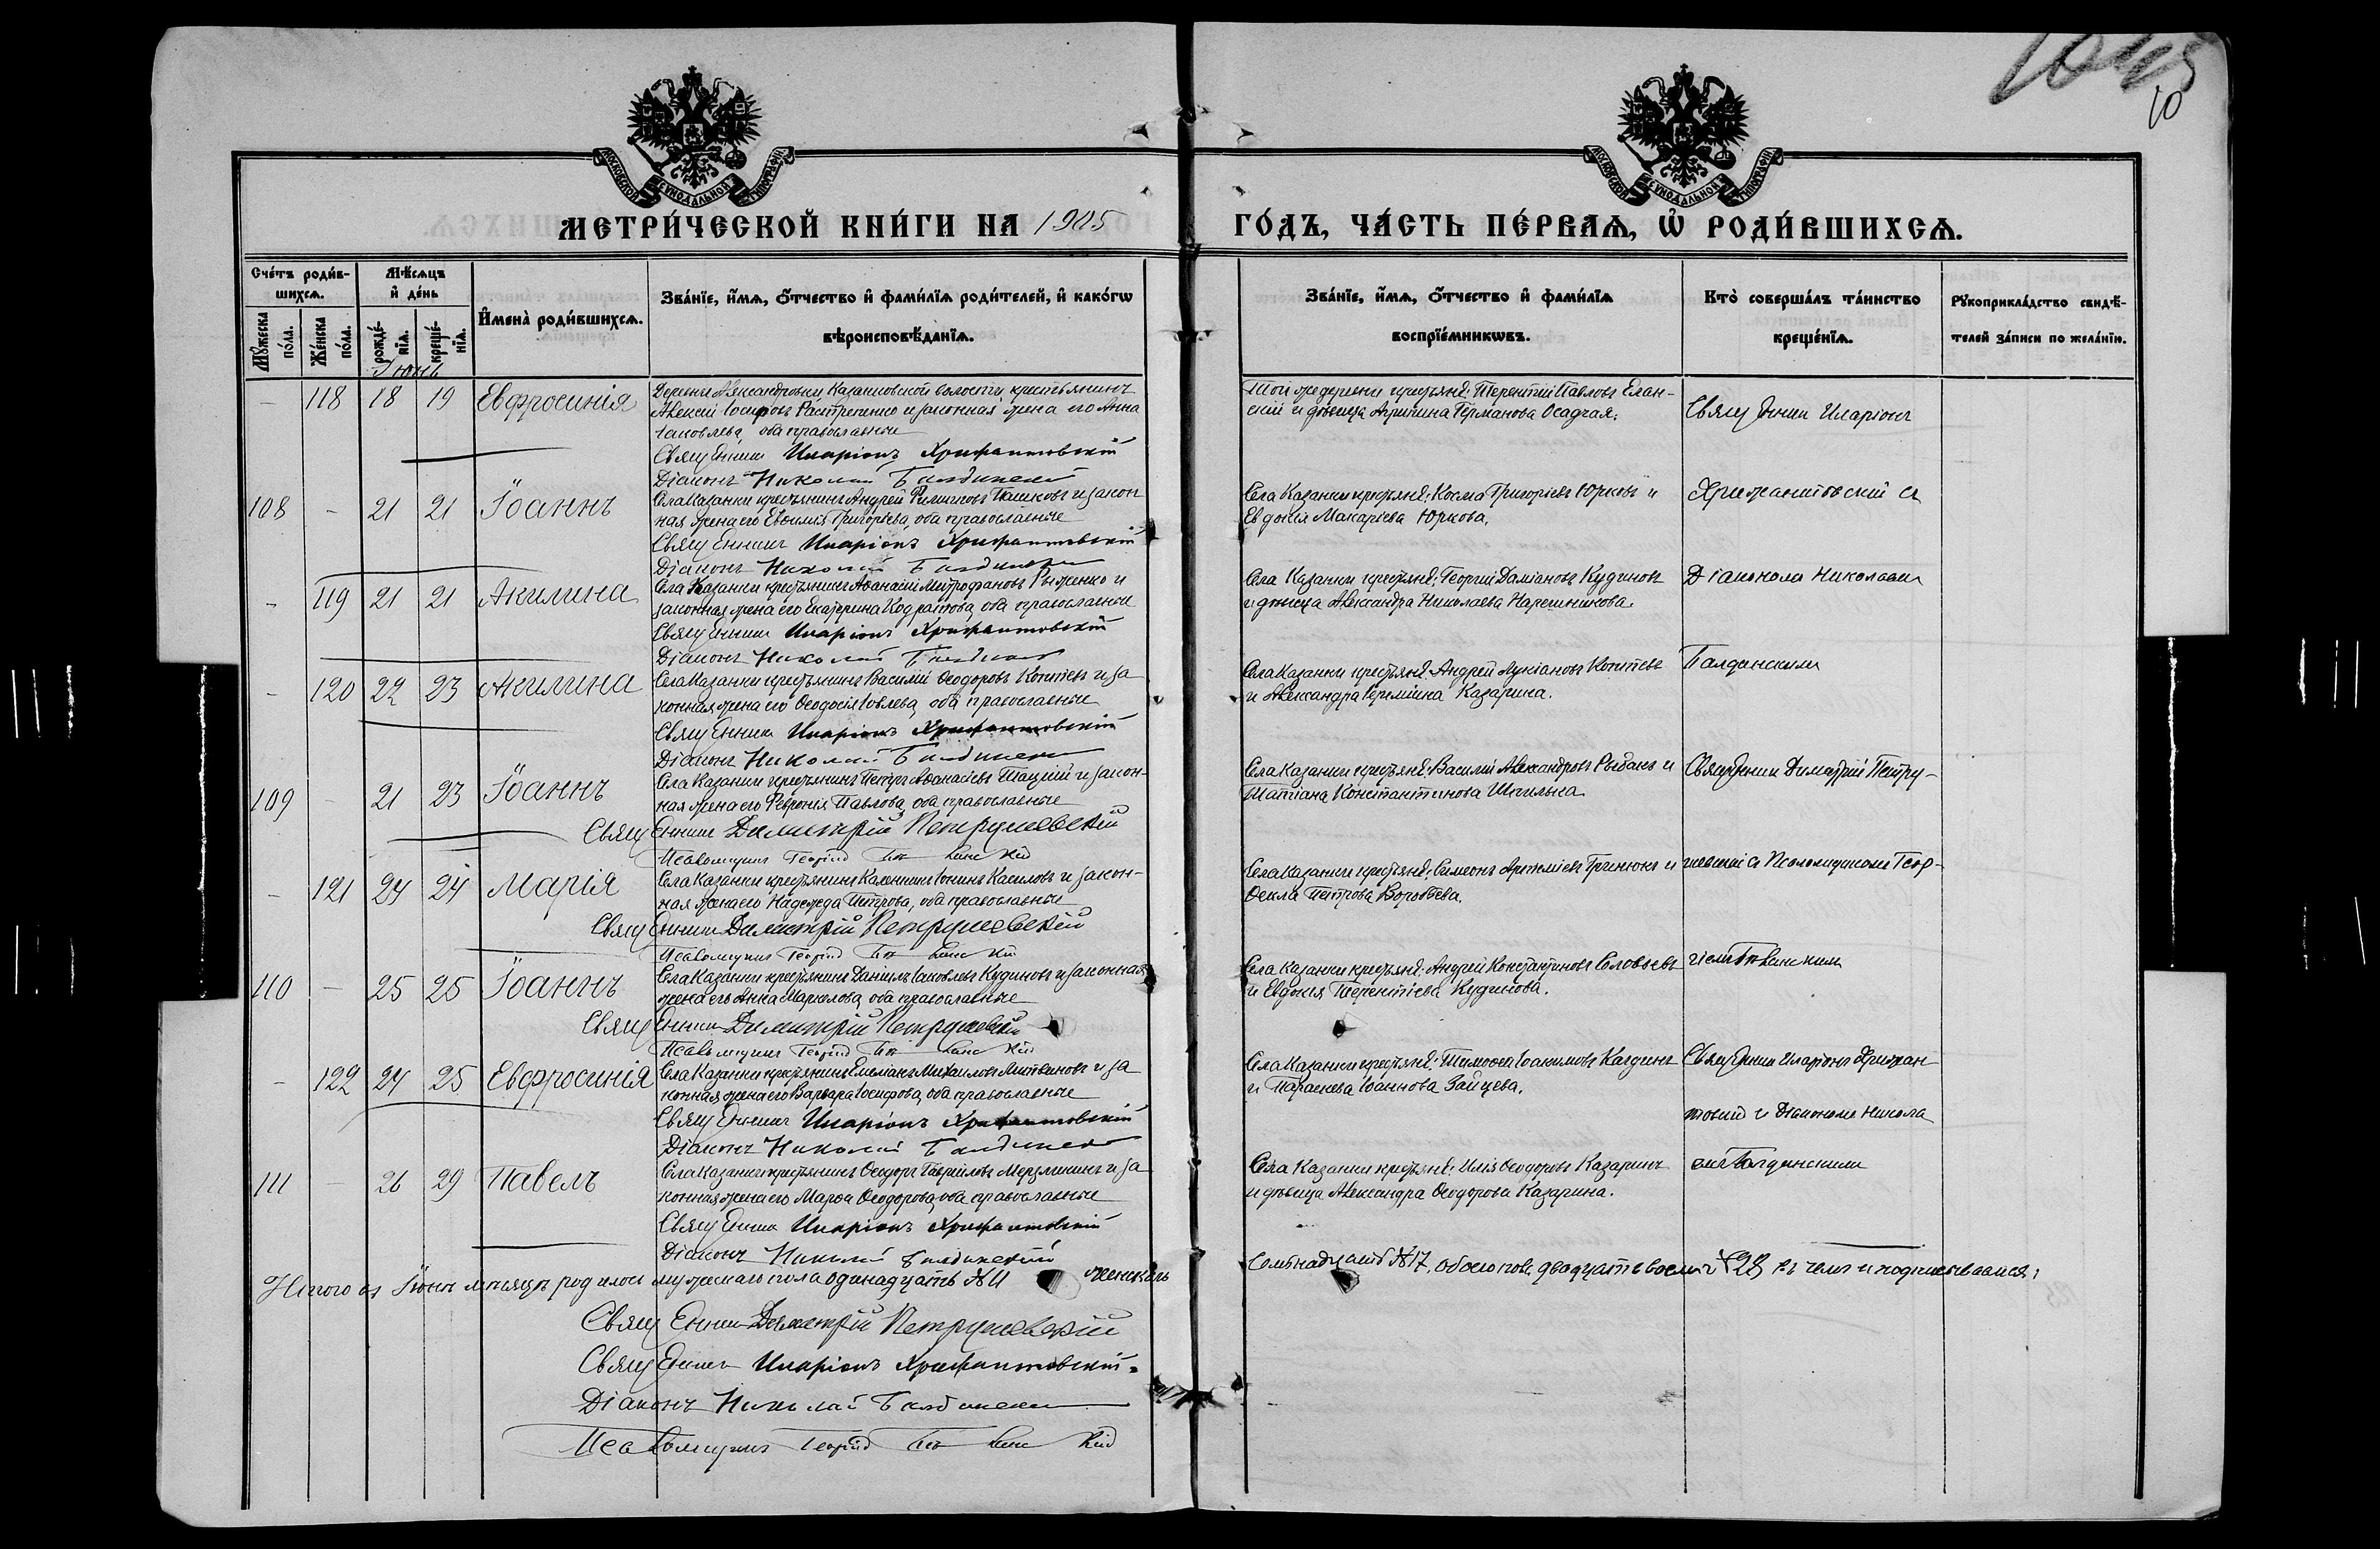 1045
10
МОСКОВСКОЙ СУНОДАЛЬНОЙ ТИПОГРАФІИ
МОСКОВСКОЙ СУНОДАЛЬНОЙ ТИПОГРАФІИ
МЕТРИ́ЧЕСКОЙ КНИ́ГИ НА 1905 ГО́ДЪ, ЧА́СТЬ ПЕ́РВАѦ, Ѡ҆ РОДИ́ВШИХСѦ.
Сче́тъ роди́в-
шихсѧ.
Мꙋ́жеска по́ла.
Же́нска по́ла.
Мѣ́сѧцъ
и҆ де́нь
рожде́-нїѧ.
креще́-нїѧ.
И҆мена̀ роди́вшихсѧ.
Зва́нїе, и҆́мѧ, ѻ҆́тчество и҆ фами́лїѧ роди́телей, и҆ како́гѡ
вѣроисповѣ́данїѧ.
Зва́нїе, и҆́мѧ, ѻ҆́тчество и҆ фами́лїѧ
воспрїе́мникѡвъ.
Кто̀ соверша́лъ та́инство
креще́нїѧ.
Рꙋкоприкла́дство свидѣ́-
телей за́писи по жела́нїю.
Іюнь
– 118 18 19 Евфросинія
Деревни Александровки Казанковской волости, крестьянинъ
Алексій Іосифовъ Растрепенко и законная жена его Анна
Іаковлева, оба православные
Священникъ Иларіонъ Хрисантовскій
Діаконъ Николай
Той же деревни крестьяне: Терентій Павловъ Елан-
скій и дѣвица Агрипина Германова Осадчая.
Священник Иларіонъ
108 – 21 21 Іоаннъ
Села Казанки крестьянинъ Андрей Филиповъ Пашковъ и закон
ная жена его Евфимія Григорьева, оба православные
Священникъ Иларіонъ Хрисантовскій
Діаконъ Николай
Села Казанки крестьяне: Косма Григорьевъ Юрковъ и
Евдокія Макаріева Юркова.
Хрисантовскій съ
– 119 21 21 Акилина
Села Казанки крестьянинъ Аѳанасій Митрофановъ Рыженко и
законная жена его Екатерина Кодратова, оба православные
Священникъ Иларіонъ Хрисантовскій
Діаконъ Николай
Села Казанки крестьяне: Георгій Даміановъ Кудиновъ
и дѣвица Александра Николаева
Діакономъ Николаемъ
– 120 22 23 Акилина
Села Казанки крестьянинъ Василій Ѳеодоровъ Коптевъ и за
конная жена его Ѳеодосія Іовлева, оба православные
Священникъ Иларіонъ Хрисантовскій
Діаконъ Николай
Села Казанки крестьяне: Андрей Лукіановъ Коптевъ
и Александра Казарина.
109 – 21 23 Іоаннъ
Села Казанки крестьянинъ Петръ Аѳанасіевъ Тацкій и закон-
ная жена его Февронія Павлова, оба православные
Священникъ Димитрій Петрушевскій
Псаломщикъ Георгій
Села Казанки крестьяне: Василій Александровъ Рыбакъ и
Татіана Константинова
Священник Димитрій Петру-
– 121 24 24 Марія
Села Казанки крестьянинъ Каленникъ Іонинъ Касиловъ и закон-
ная жена его Надежда Петрова, оба православные
Священникъ Димитрій Петрушевскій
Псаломщикъ Георгій
Села Казанки крестьяне: Симеонъ Артеміевъ Гринюкъ и
Ѳекла Петрова Воробьева.
шевскій съ Псаломщикомъ Геор-
110 – 25 25 Іоаннъ
Села Казанки крестьянинъ Даніилъ Іаковлевъ Кудиновъ и законная
жена его Анна Маркелова, оба православные
Священникъ Димитрій Петрушевскій
Псаломщикъ Георгій
Села Казанки крестьяне: Андрей Константиновъ Соловьевъ
и Евдокія Терентіева Кудинова.
– 122 24 25 Евфросинія
Села Казанки крестьянинъ Емеліанъ Михаиловъ Литвиновъ и за
конная жена его Варвара Іосифова, оба православные
Священникъ Иларіонъ Хрисантовскій
Діаконъ Николай
Села Казанки крестьяне: Тимоѳей Іоакимовъ
и Параскева Іоаннова Зайцева.
Священник Иларіонъ Хрисан
товскій съ Діакономъ Никола
111 – 26 29 Павелъ
Села Казанки крестьянинъ Ѳеодоръ Гавриловъ Мерзликинъ и за
конная жена его Марѳа Ѳеодорова, оба православные
Священник Иларіонъ Хрисантовскій
Діаконъ Николай
Села Казанки крестьяне: Илія Ѳеодоровъ Казаринъ
и дѣвица Александра Ѳеодорова Казарина.
Итого въ Іюнѣ мѣсяцѣ родилось мужескаго пола одинадцать №11 женскаго
семьнадцать №17, обоего пола двадцать восемь №28 въ чемъ и подписываемся:
Священникъ Димитрій Петрушевскій
Священникъ Иларіонъ Хрисантовскій.
Діаконъ Николай
Псаломщикъ Георгій